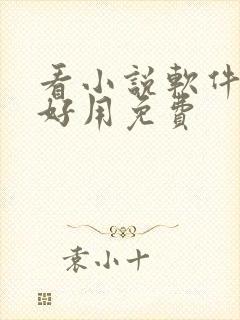 看小說軟件
好用免費
袁小十